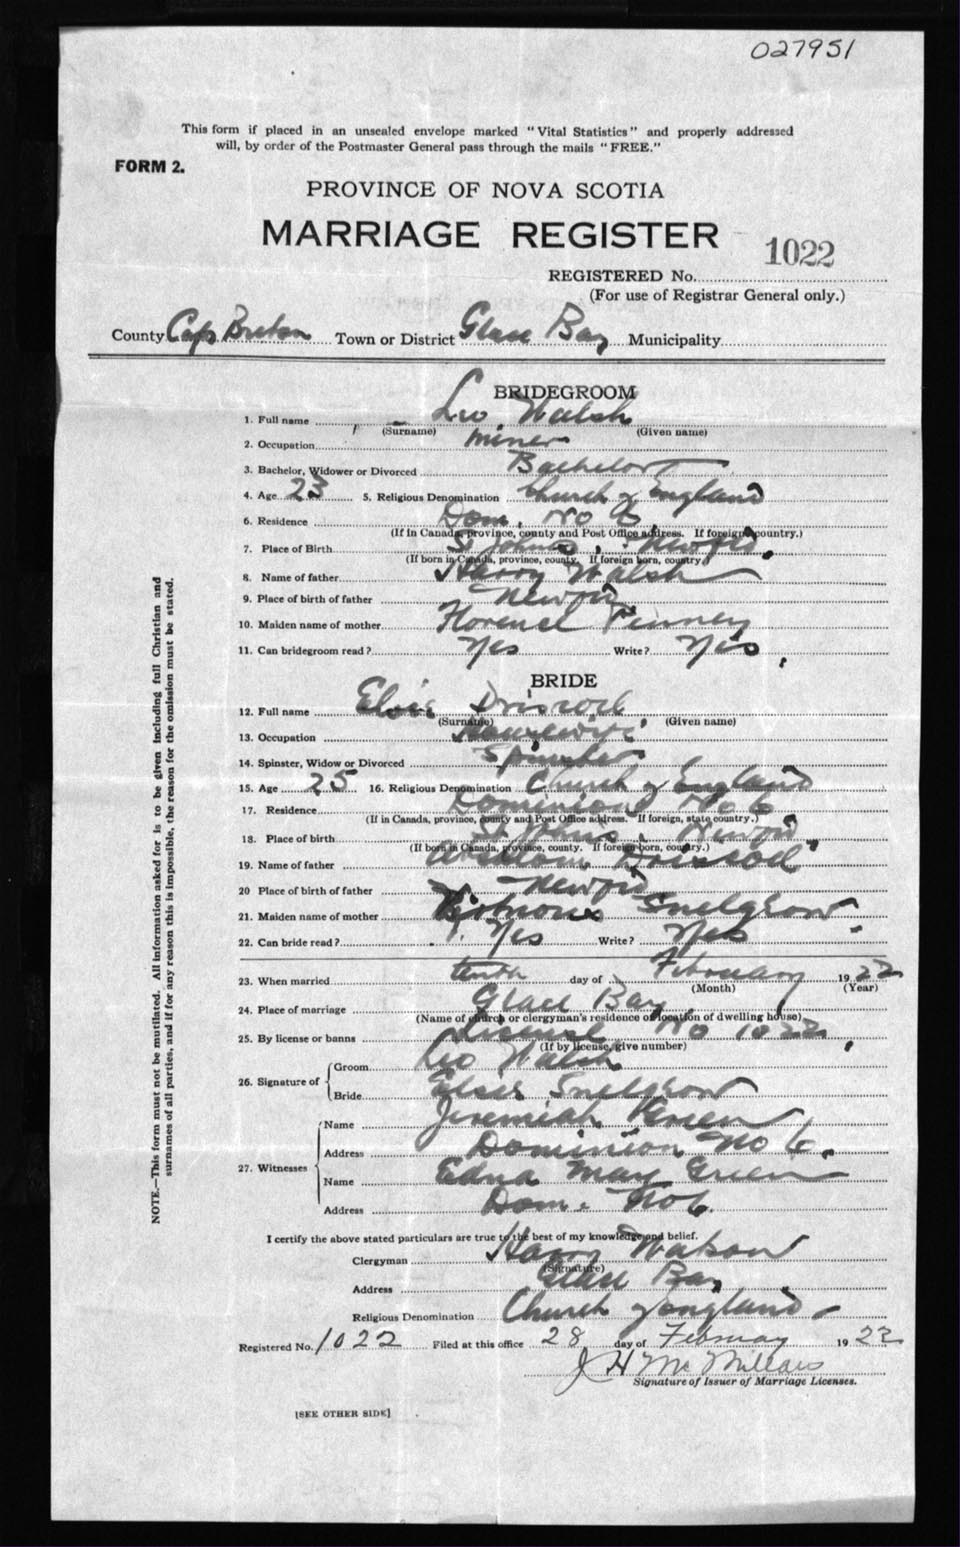 027951
This form if placed in an unsealed envelope marked "Vital Statistics" and properly addressed
will, by order of the Postmaster General pass through the mails "FREE."
FORM 2.
PROVINCE OF NOVA SCOTIA
MARRIAGE REGISTER
1022
REGISTERED No.
(For use of Registrar General only.)
County Cape Breton Town or District Glace Bay Municipality
BRIDEGROOM
1. Full name Leo Walsh
(Surname) (Given name)
2. Occupation miner
3. Bachelor, Widower or Divorced Bachelor
4. Age 23 5. Religious Denomination Church of England
6. Residence Dom. No 6
(If in Canada, province, county and Post Office address. If foreign country.)
7. Place of Birth St Johns, Newfld.
(If born in Canada, province, county. If foreign born, country)
8. Name of father Harry Walsh
9. Place of birth of father Newfld
10. Maiden name of mother Florence Pinney
11. Can bridegroom read? Yes Write? Yes
BRIDE
12. Full name Elsie Driscoll
(Surname) (Given name)
13. Occupation Housewife
14. Spinster, Widow or Divorced Spinster
15. Age 25 16. Religious Denomination Church of England
17. Residence Dominion No 6
(If in Canada, province, county and Post Office address. If foreign, state country.)
18. Place of birth St Johns, Newfld
(If born in Canada, province, county. If foreign born, country.)
19. Name of father Driscoll
20 Place of birth of father Newfld
21. Maiden name of mother Snelgrow
22. Can bride read? Yes Write? Yes
23. When married tenth day of February 1922
(Month) (Year)
24. Place of marriage Glace Bay
(Name of church or clergyman's residence or location of dwelling house)
25. By license or banns License No 1022
(If by license, give number)
26. Signature of Groom Leo Walsh
Bride Elsie Snelgrow
27. Witnesses Name Jeremiah Green
Address Dominion No 6.
Name Edna May Green
Address Dom. No 6.
I certify the above stated particulars are true to the best of my knowledge and belief.
Clergyman Harry Watson
(Signature)
Address Glace Bay
Religious Denomination Church of England
Registered No. 1022 Filed at this office 28 day of February 1922
J H McMillan
Signature of Issuer of Marriage Licenses.
[SEE OTHER SIDE]
NOTE.—This form must not be mutilated. All information asked for is to be given including full Christian and
surnames of all parties, and if for any reason this is impossible, the reason for the omission must be stated.